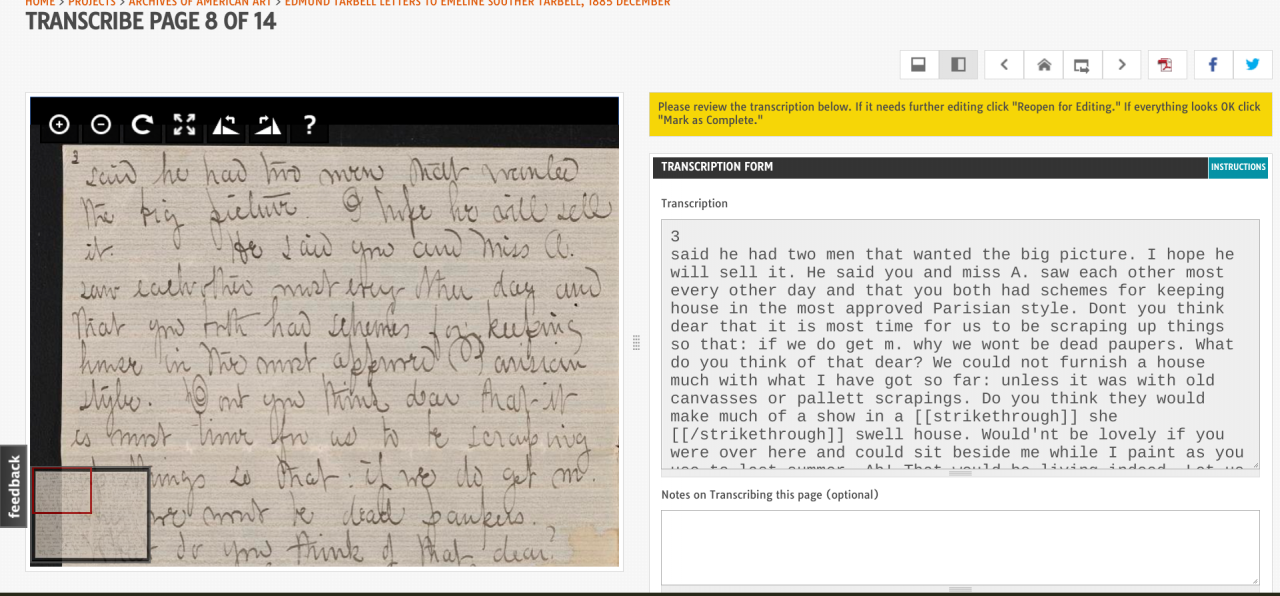 HOME > PROJECTS > ARCHIVES OF AMERICAN ART > EDMUND TARBELL LETTERS TO EMELINE SOUTHER TARBELL, 1885 DECEMBER
TRANSCRIBE PAGE 8 OF 14
3
said he had two men that wanted
the big picture. I hope he will sell
it. He said you and Miss A.
saw each other most every other day and
that you both had schemes for keeping
house in the most approved Parisian
style. Dont you think dear that it
is most time for us to be scraping
things so that: if we do get m.
we wont be dead paupers.
do you think of that dear?
feedback
Please review the transcription below. If it needs further editing click "Reopen for Editing." If everything looks OK click
"Mark as Complete."
TRANSCRIPTION FORM
INSTRUCTIONS
Transcription
3
said he had two men that wanted the big picture. I hope he
will sell it. He said you and miss A. saw each other most
every other day and that you both had schemes for keeping
house in the most approved Parisian style. Dont you think
dear that it is most time for us to be scraping up things
so that: if we do get m. why we wont be dead paupers. What
do you think of that dear? We could not furnish a house
much with what I have got so far: unless it was with old
canvasses or pallett scrapings. Do you think they would
make much of a show in a [[strikethrough]] she
[[/strikethrough]] swell house. Would'nt be lovely if you
were over here and could sit beside me while I paint as you
use to last summer. Ah! That would be living indeed. Let us
Notes on Transcribing this page (optional)